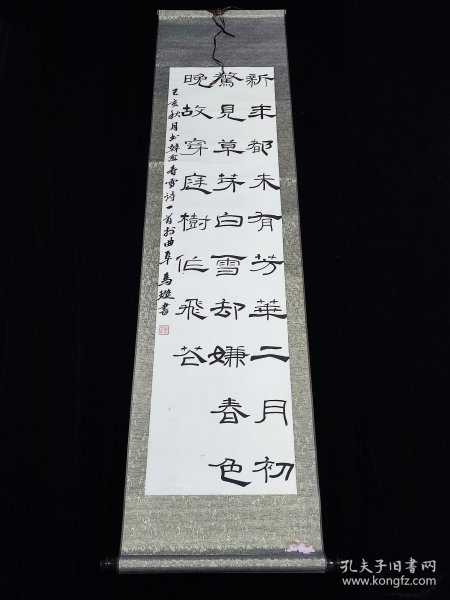 新年都未有芳華二月初
驚見草芽白雪却嫌春色
晚故穿庭樹作飛花
亥秋月书韓愈春雪詩一首於曲阜 馬璇書
孔夫子旧书网
www.kongfz.com